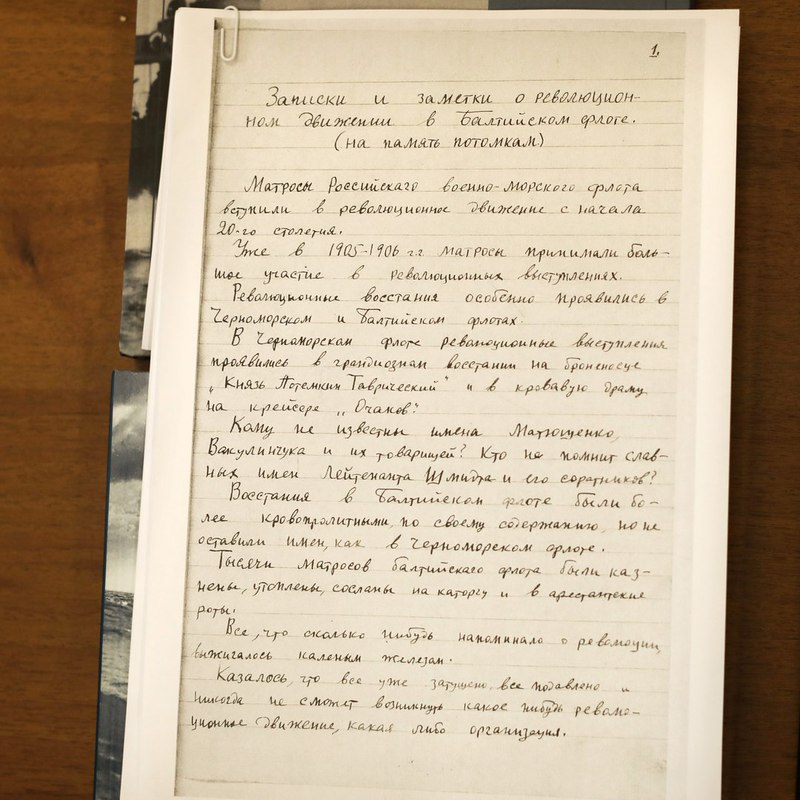 1.
Записки и заметки о революцион-
ном движении в Балтийском флоте.
(на память потомкам)
Матросы Российскаго военно-морского флота
вступили в революционное движение с начала
20-го столетия.
Уже в 1905-1906 г.г матросы принимали боль-
шое участие в революционных выступлениях.
Революционные восстания особенно проявились в
Черноморском и Балтийском флотах.
В Черноморскам флоте революционные выступления
проявились в грандиознам восстании на броненосце
„Князь Потемкин Таврический" и в кровавую драму
на крейсере „Очаков".
Каму не известны имена Матющенко,
Вакулинчука и их товарищей? Кто не помнит слав-
ных имен Лейтенанта Шмидта и его соратников?
Восстания в Балтийском флоте были бо-
лее кровопролитными, по своему содержанию, но не
оставили имен, как в Черноморском флоте.
Тысячи матросов балтийскаго флота были каз-
нены, утоплены, сосланы на каторгу и в арестантские
роты.
Все, что сколько нибудь напоминало о революции
выжигалось каленым железам.
Казалось, что все уже затушено, все подавлено и
никогда не сможет возникнуть какое нибудь револю-
ционное движение, какая либо организация.